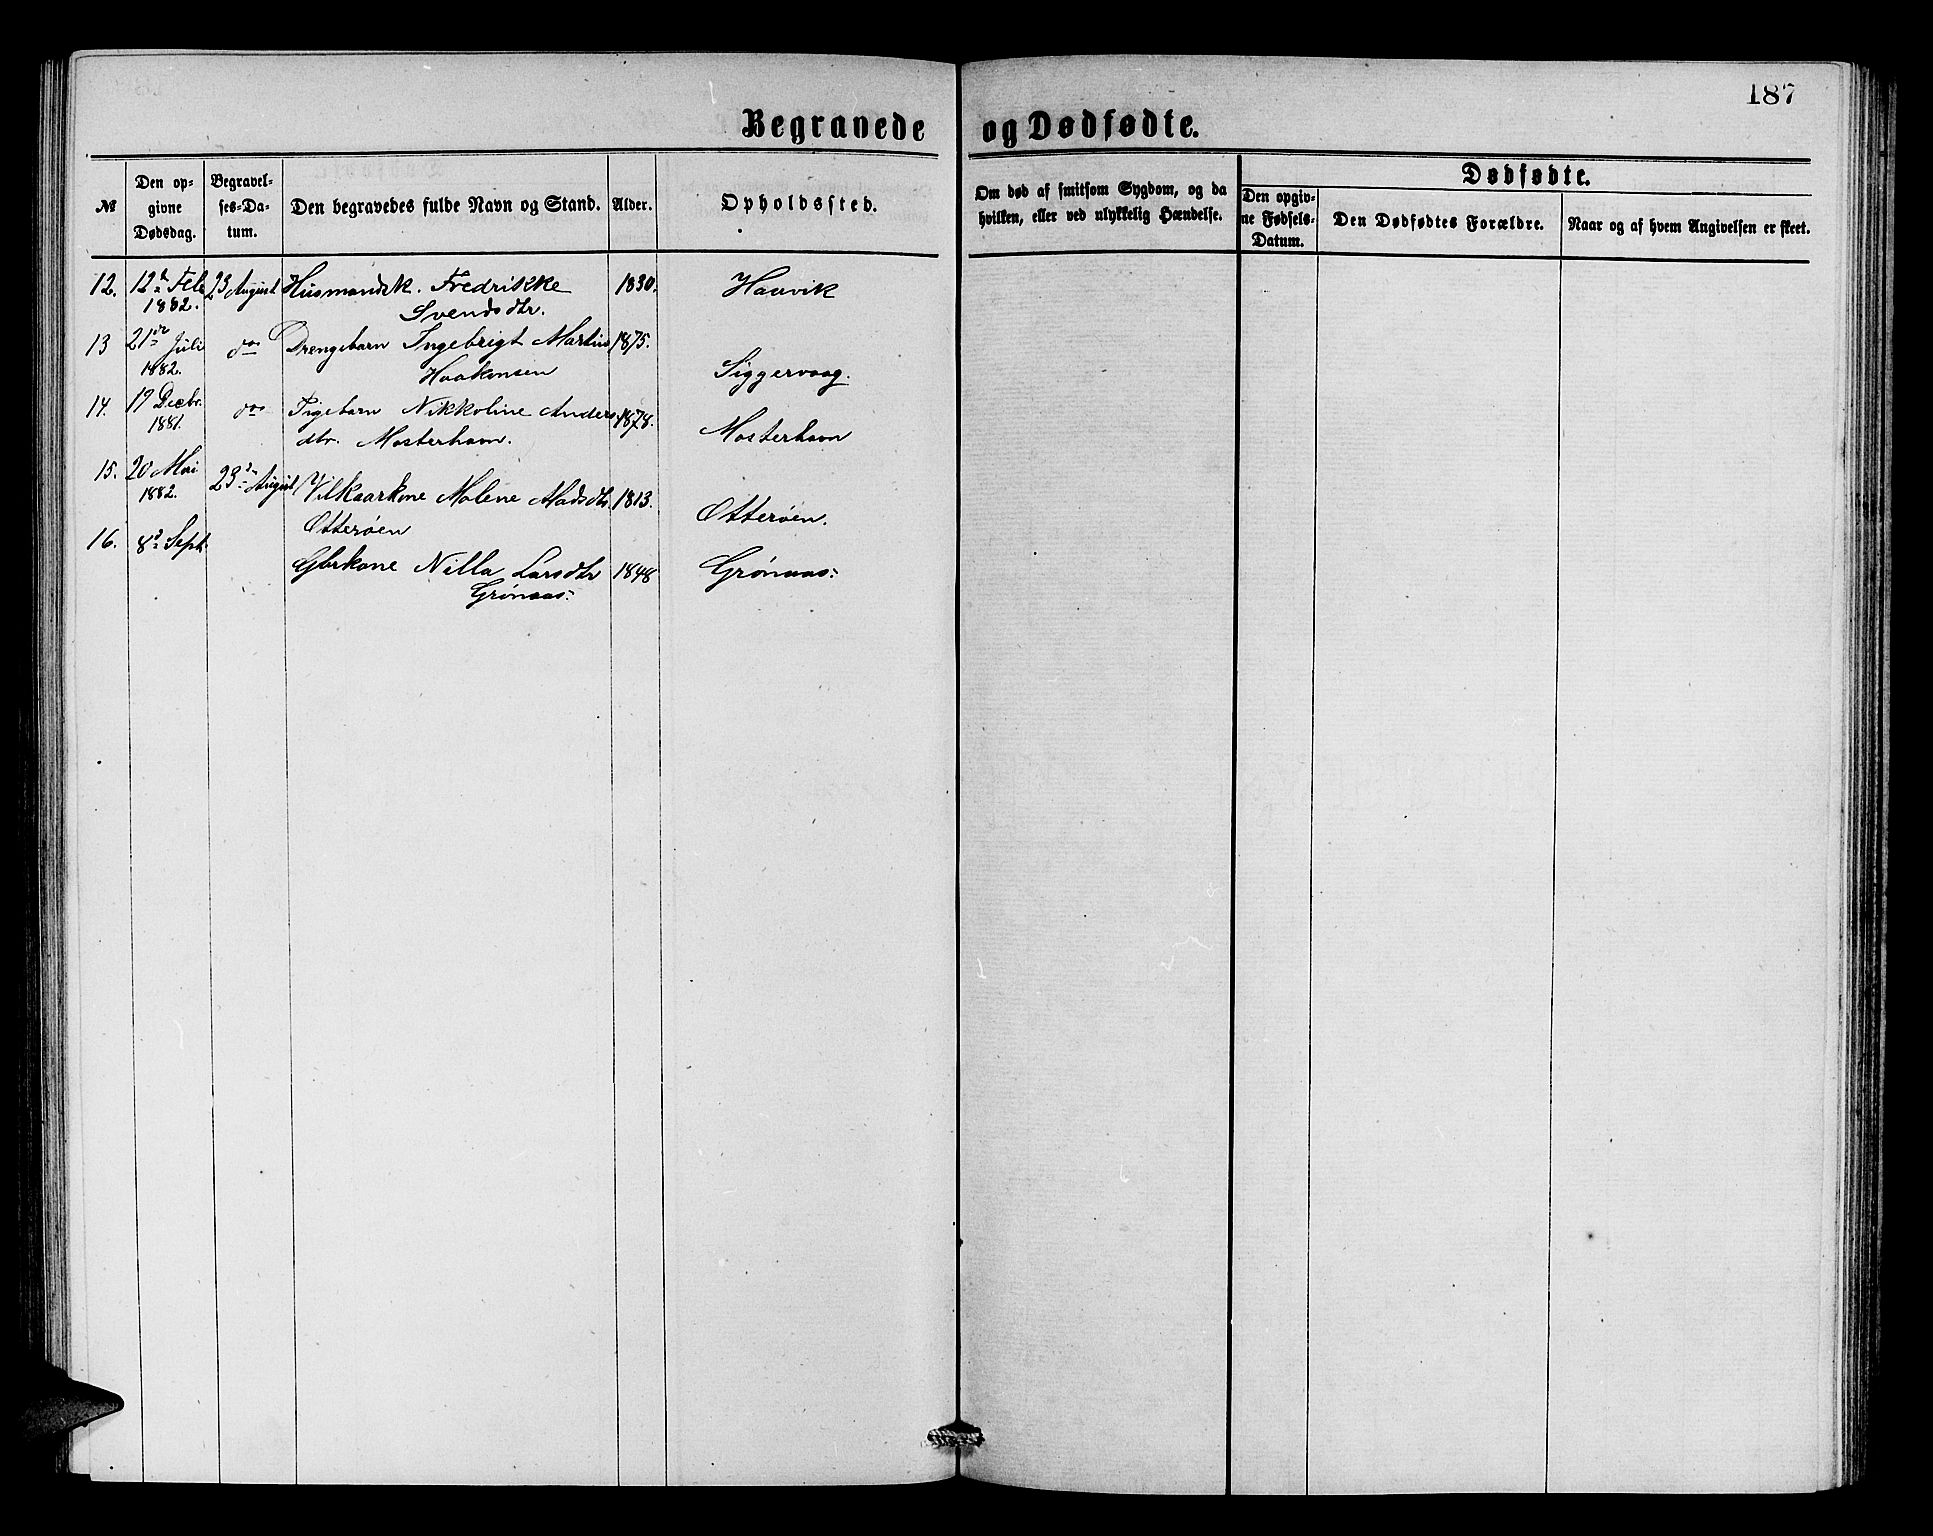 187
Begravede og Dødfødte.
№
Den op-
givne
Dødsdag.
Begravel-
ses-Da-
tum.
Den begravedes fulde Navn og Stand.
Alder.
Opholdssted.
Om død af smitsom Sygdom, og da
hvilken, eller ved ulykkelig Hændelse.
Dødfødte.
Den opgiv-
ne Fødsels-
Datum.
Den Dødfødtes Forældre.
Naar og af hvem Angivelsen er skeet.
12. 12te Feb 23 August Husmandsk. Fredrikke 1830. Haavik
1882. Svendsdtr.
13 21de Juli do Drengebarn Ingebrigt Martin 1875.
1882. Haakonsen Siggervaag.
14. 17 Decbr. do Pigebarn Nikkoline Anders 1878.
1881. dtr. Mosterhavn. Mosterhavn
15. 20 Mai 23de August Vilkaarkone Malene Madsdtr. 1813.
1882. Otterøen Otterøen.
16. 8de Sept.
Gbrkone Nilla Larsdtr 1848 Grønaas:
Grønaas: